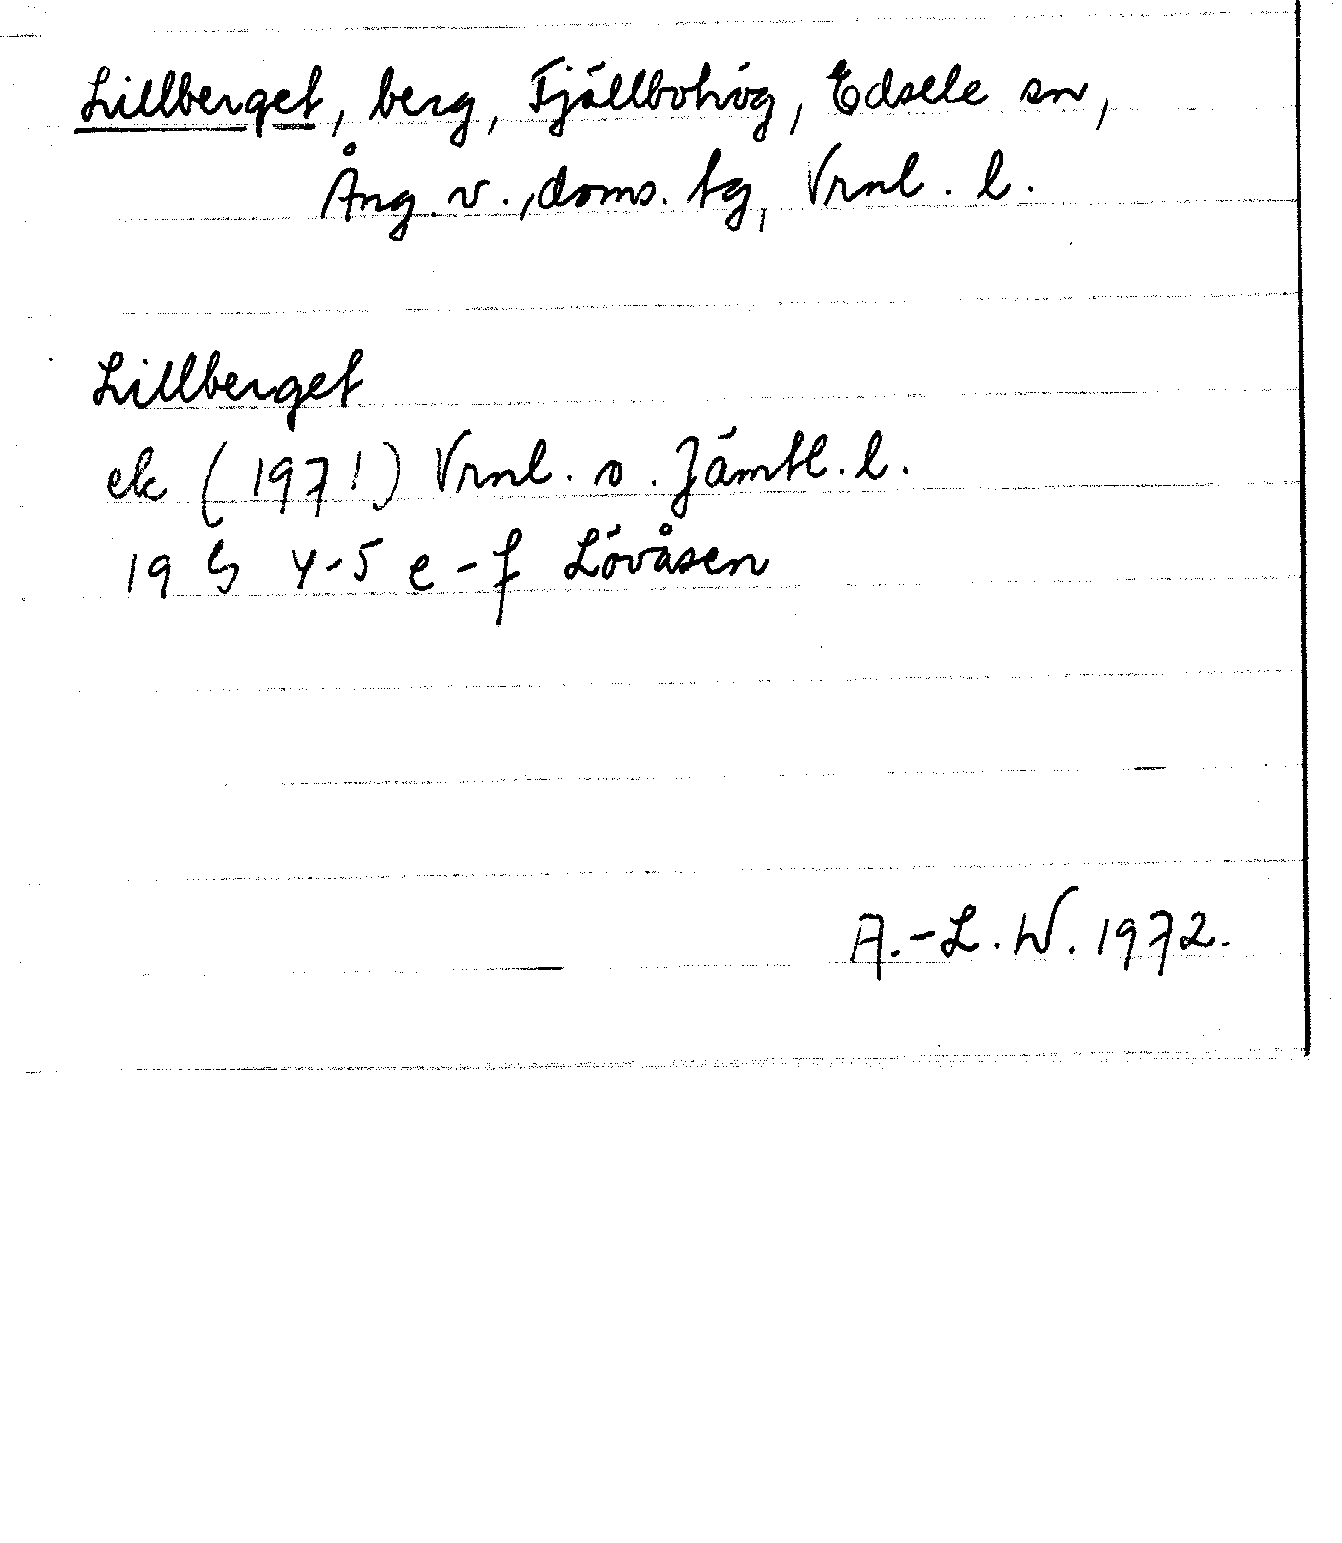 Lillberget, berg, Fjällbohög, Edsele sn,
Ång. v., doms. tg, Vrnl. l.
Lillberget
ek (1971) Vrnl. o. Jämtl. l.
19 G 4-5 e-f Lövåsen
A.-L. W. 1972.